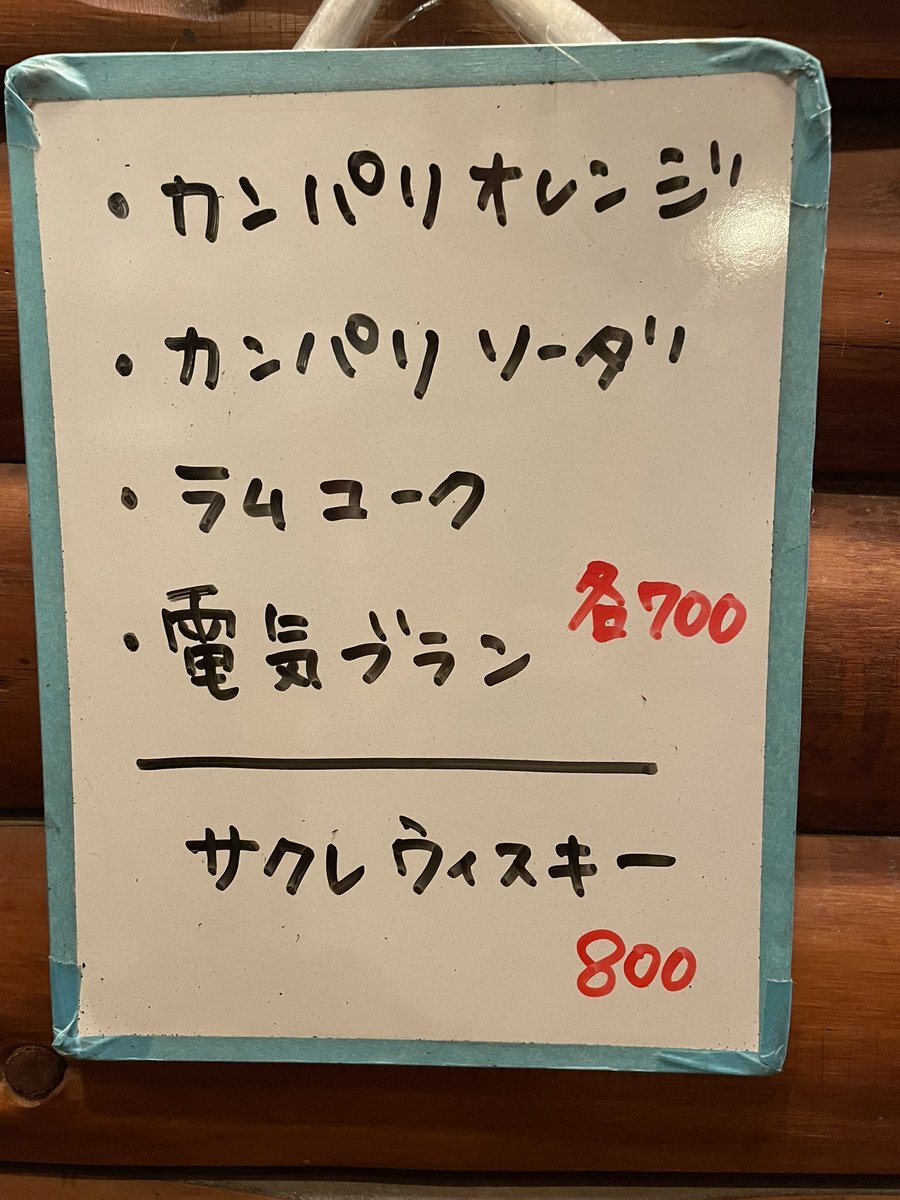 ・カンパリオレンジ
・カンパリソーダ
・ラムコーク
・電気ブラン
各700
サクレウィスキー
800